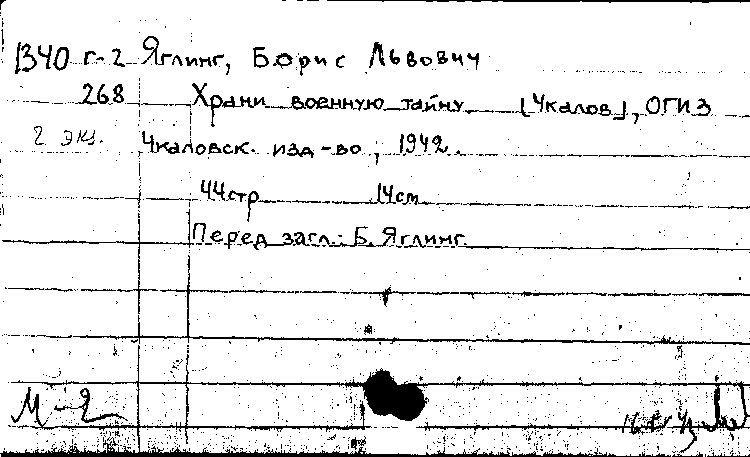 1340 г-2 Яглинг, Борис Львович
268 Храни военную тайну. [Чкалов], ОГИЗ
2 экз. Чкаловск. изд-во, 1942.
44стр 14см.
Перед загл.: Б. Яглинг.
М-2